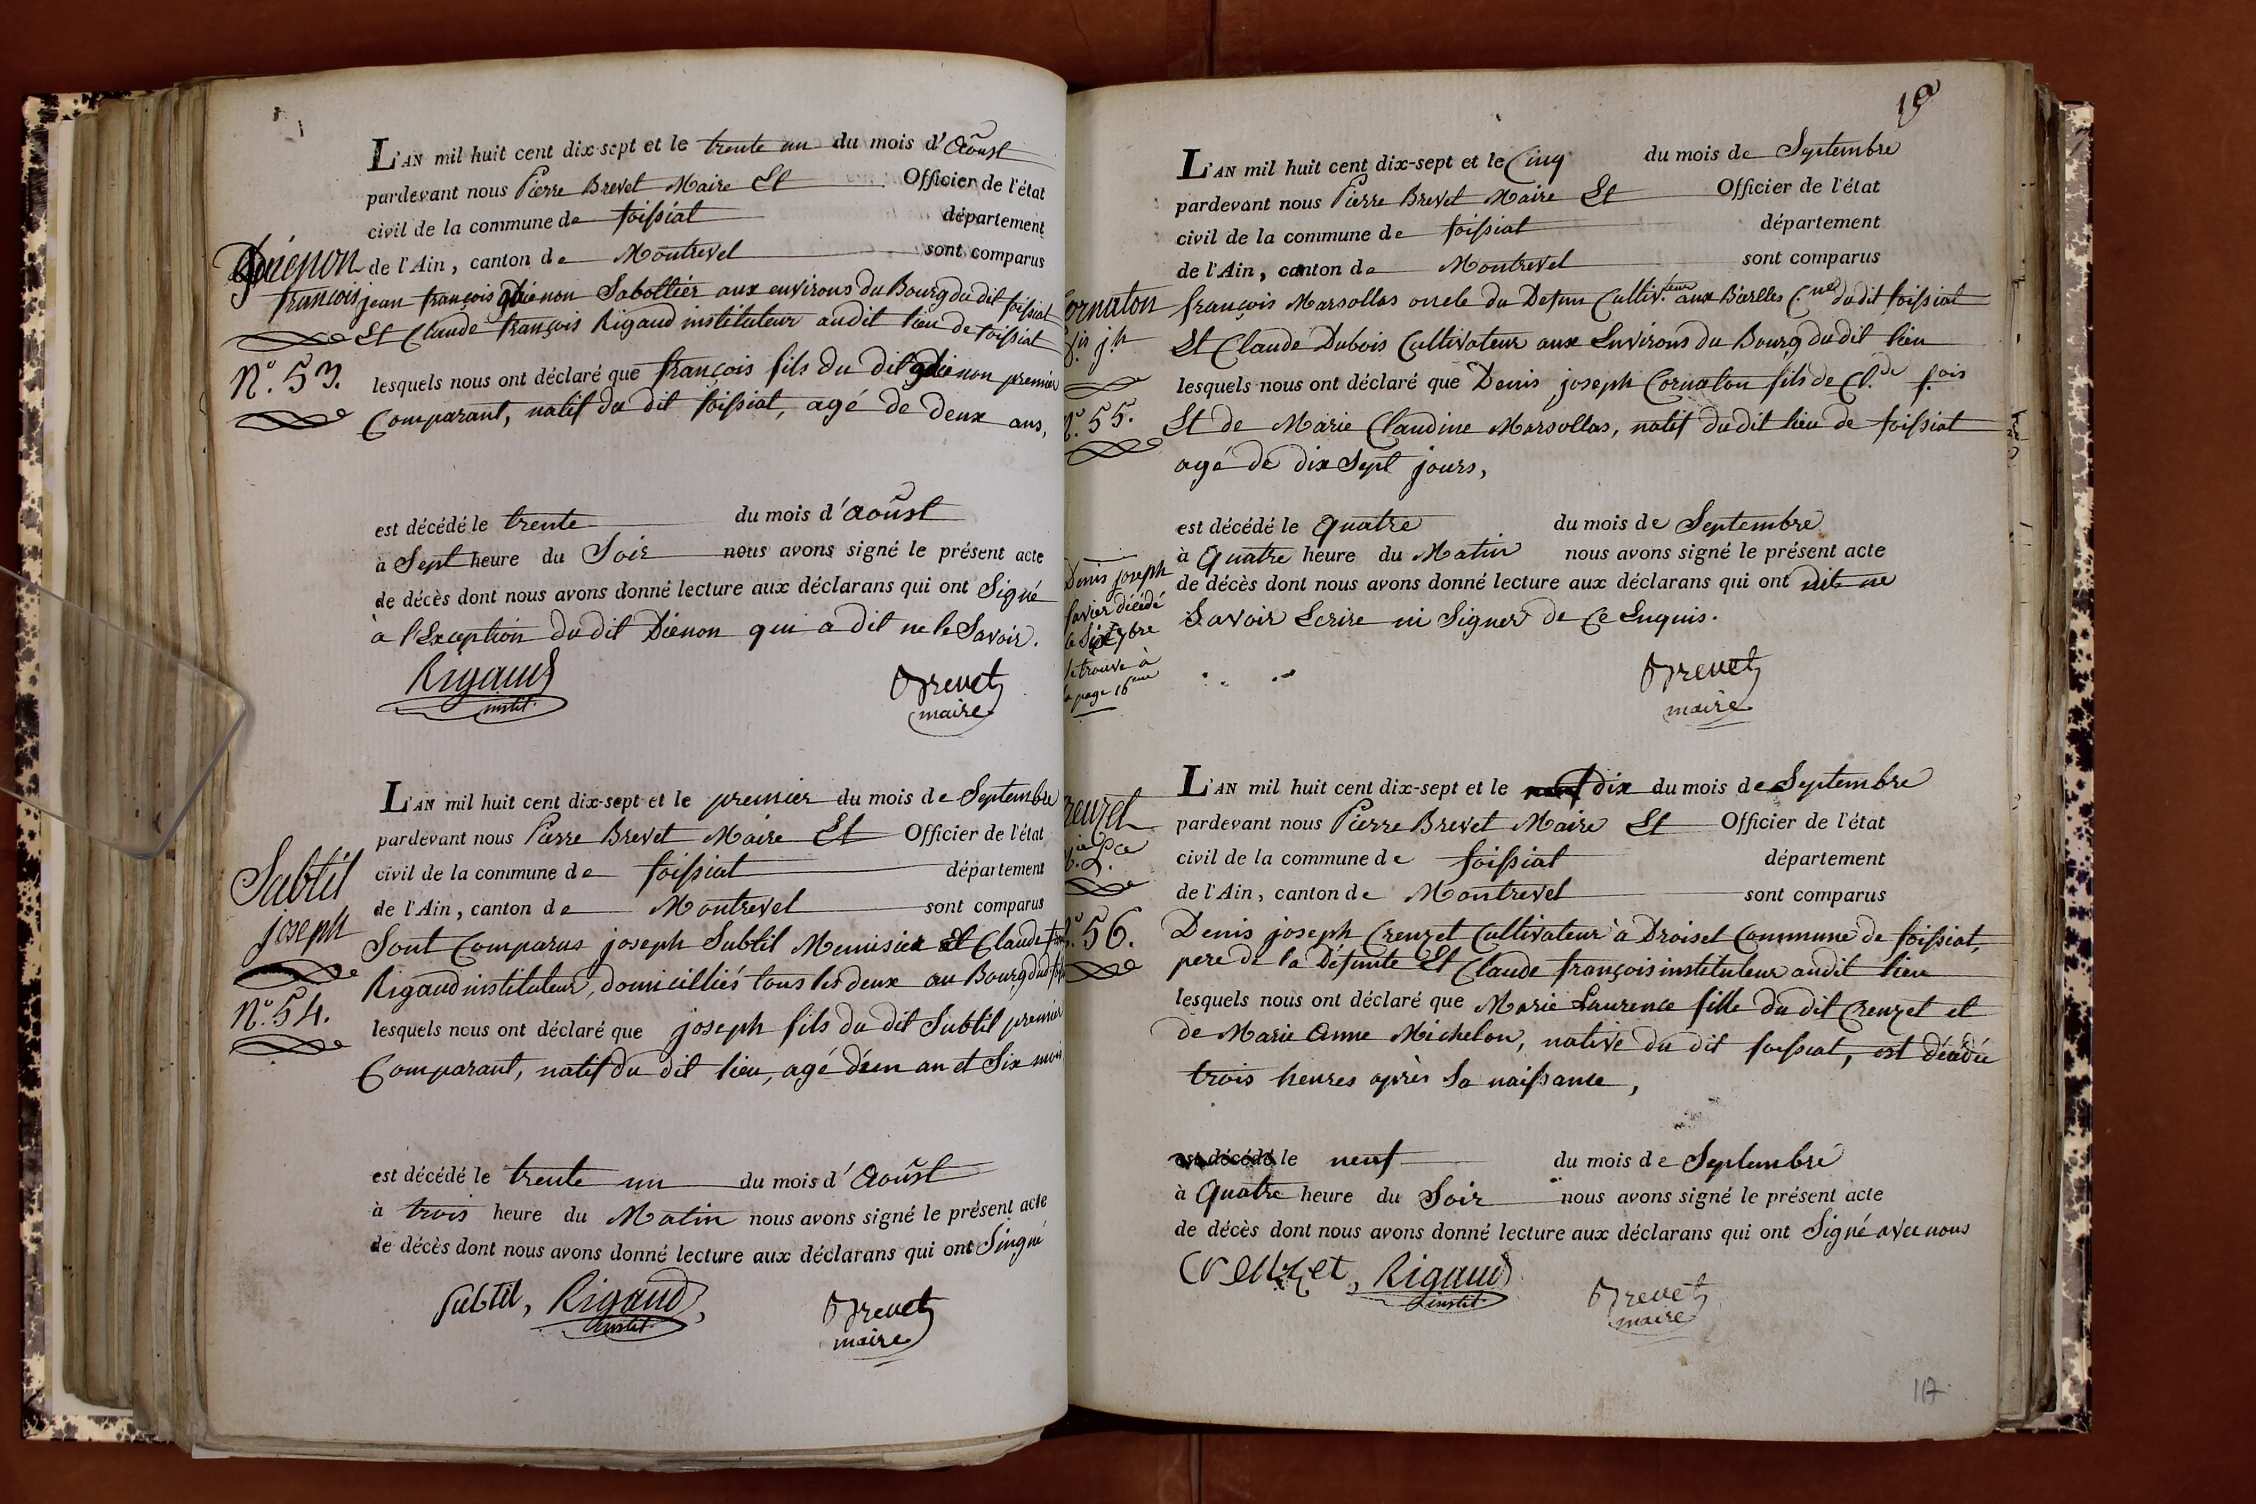 L'AN mil huit cent dix-sept et le trente un du mois d'Aoûst
pardevant nous Pierre Brevet Maire Et Officier de l'état
civil de la commune de foissiat département
de l'Ain, canton de Montrevel sont comparus
françois
jean françois Sabottier aux environs du Bourg du dit foissiat
Et Claude françois Rigaud instituteur audit lieu de foissiat
N.° 53.
lesquels nous ont déclaré que françois fils du dit premier
Comparant, natif du dit foissiat, agé de deux ans,
est décédé le trente du mois d'aoûst
à Sept heure du Soir nous avons signé le présent acte
de décès dont nous avons donné lecture aux déclarans qui ont Signé
à l'Exception dudit Diénon qui a dit ne le Savoir.
Rigaud
instit.
Brevet
maire
L'AN mil huit cent dix-sept et le premier du mois de Septembre
pardevant nous Pierre Brevet Maire Et Officier de l'état
civil de la commune de foissiat département
de l'Ain, canton de Montrevel sont comparus
Subtil
joseph
Sont Comparus joseph Subtil Menuisier Et Claude
Rigaud instituteur, domicilliés tous les deux au Bourg
N.° 54.
lesquels nous ont déclaré que joseph fils du dit Subtil premier
Comparant, natif du dit lieu, agé d'un an et Six mois
est décédé le trente un du mois d'Aoûst
à trois heure du Matin nous avons signé le présent acte
de décès dont nous avons donné lecture aux déclarans qui ont Singné
Subtil, Rigaud,
instit.
Brevet
maire
19
L'AN mil huit cent dix-sept et le Cinq du mois de Septembre
pardevant nous Pierre Brevet Maire Et Officier de l'état
civil de la commune de foissiat département
de l'Ain, canton de Montrevel sont comparus
ornaton
j.h
N.° 55.
françois Marsollas oncle du Defun Cultiv.teur aux C.ne dudit foissiat
Et Claude Dubois Cultivateur aux Environs du Bourg dudit lieu
lesquels nous ont déclaré que Denis joseph Cornaton fils de Cl.de f.ois
Et de Marie Claudine Marsollas, natif dudit lieu de foissiat
agé de dix Sept jours,
est décédé le Quatre du mois de Septembre
à Quatre heure du Matin nous avons signé le présent acte
de décès dont nous avons donné lecture aux déclarans qui ont dit ne
Savoir Ecrire ni Signer de Ce Enquis.
Denis joseph
favier décédé
le 7bre
se trouve à
la page 16me
Brevet
maire
L'AN mil huit cent dix-sept et le dix du mois de Septembre
pardevant nous Pierre Brevet Maire Et Officier de l'état
civil de la commune de foissiat département
de l'Ain, canton de Montrevel sont comparus
reuzet
56.
Denis joseph Creuzet Cultivateur à Droisel Commune de foissiat,
pere de la Défunte Et Claude françois instituteur audit lieu
lesquels nous ont déclaré que Marie Laurence fille du dit Creuzet et
de Marie Anne Michelon, native du dit foissiat, est décédée
trois heures après Sa naissance,
est décédé le neuf du mois de Septembre
à Quatre heure du Soir nous avons signé le présent acte
de décès dont nous avons donné lecture aux déclarans qui ont Signé avec nous
Creuzet, Rigaud
instit.
Brevet
maire
117